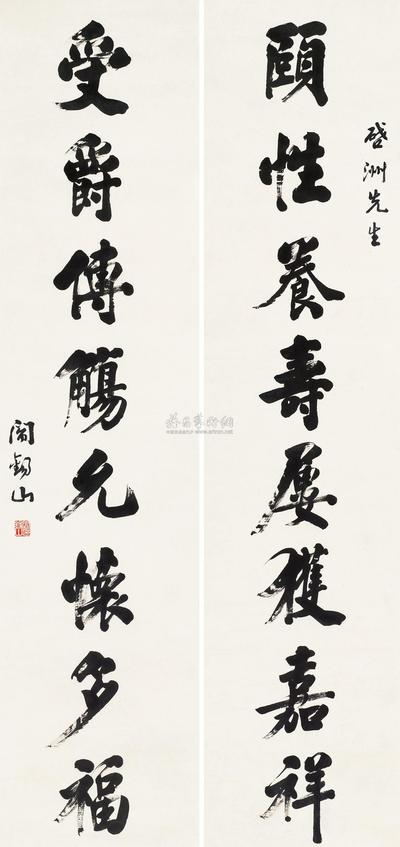 啓洲先生
頤性養壽屢獲嘉祥
受爵傳觴允懷多福
閻錫山